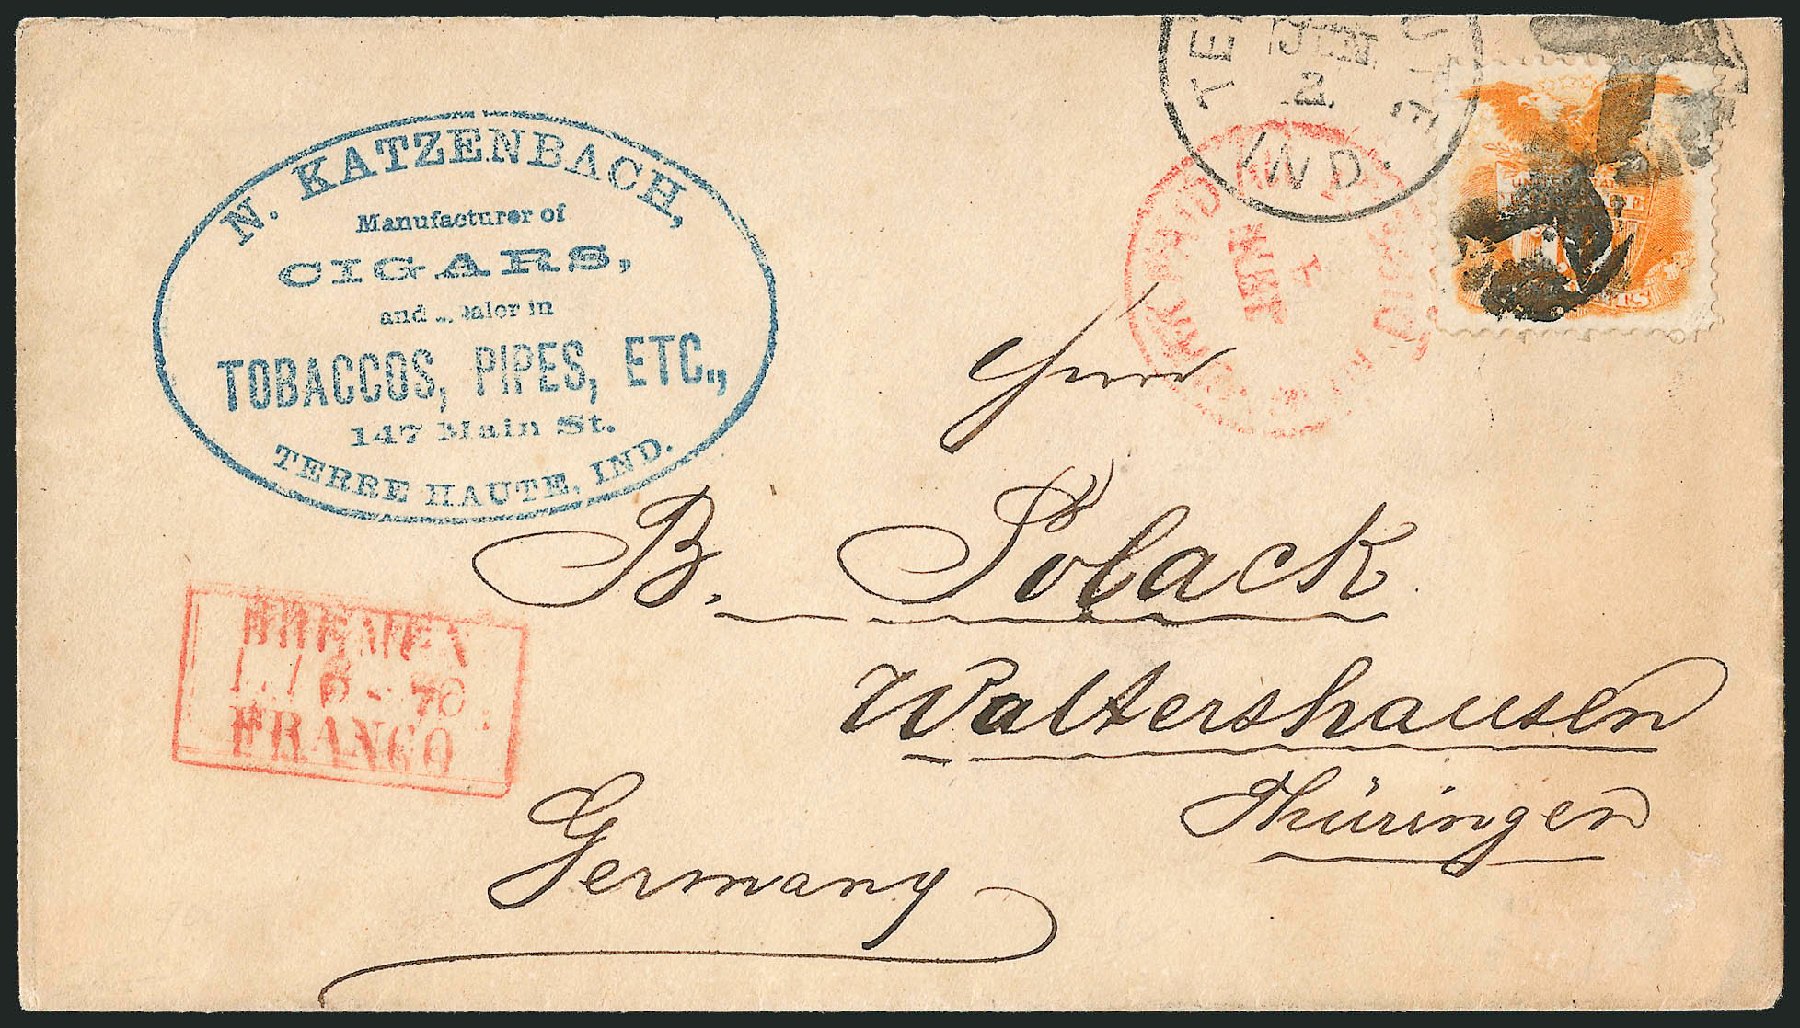 N. KATZENBACH,
Manufacturer of
CIGARS,
and ealer in
TOBACCOS, PIPES, ETC.,
147 Main St.
TERRE HAUTE, IND.
TE
JUN
2
IND.
PAID
JUN
4
UNITED
CTS
Herrn
B. Polack
Waltershausen
Thüringen
Germany
BREMEN
FRANCO